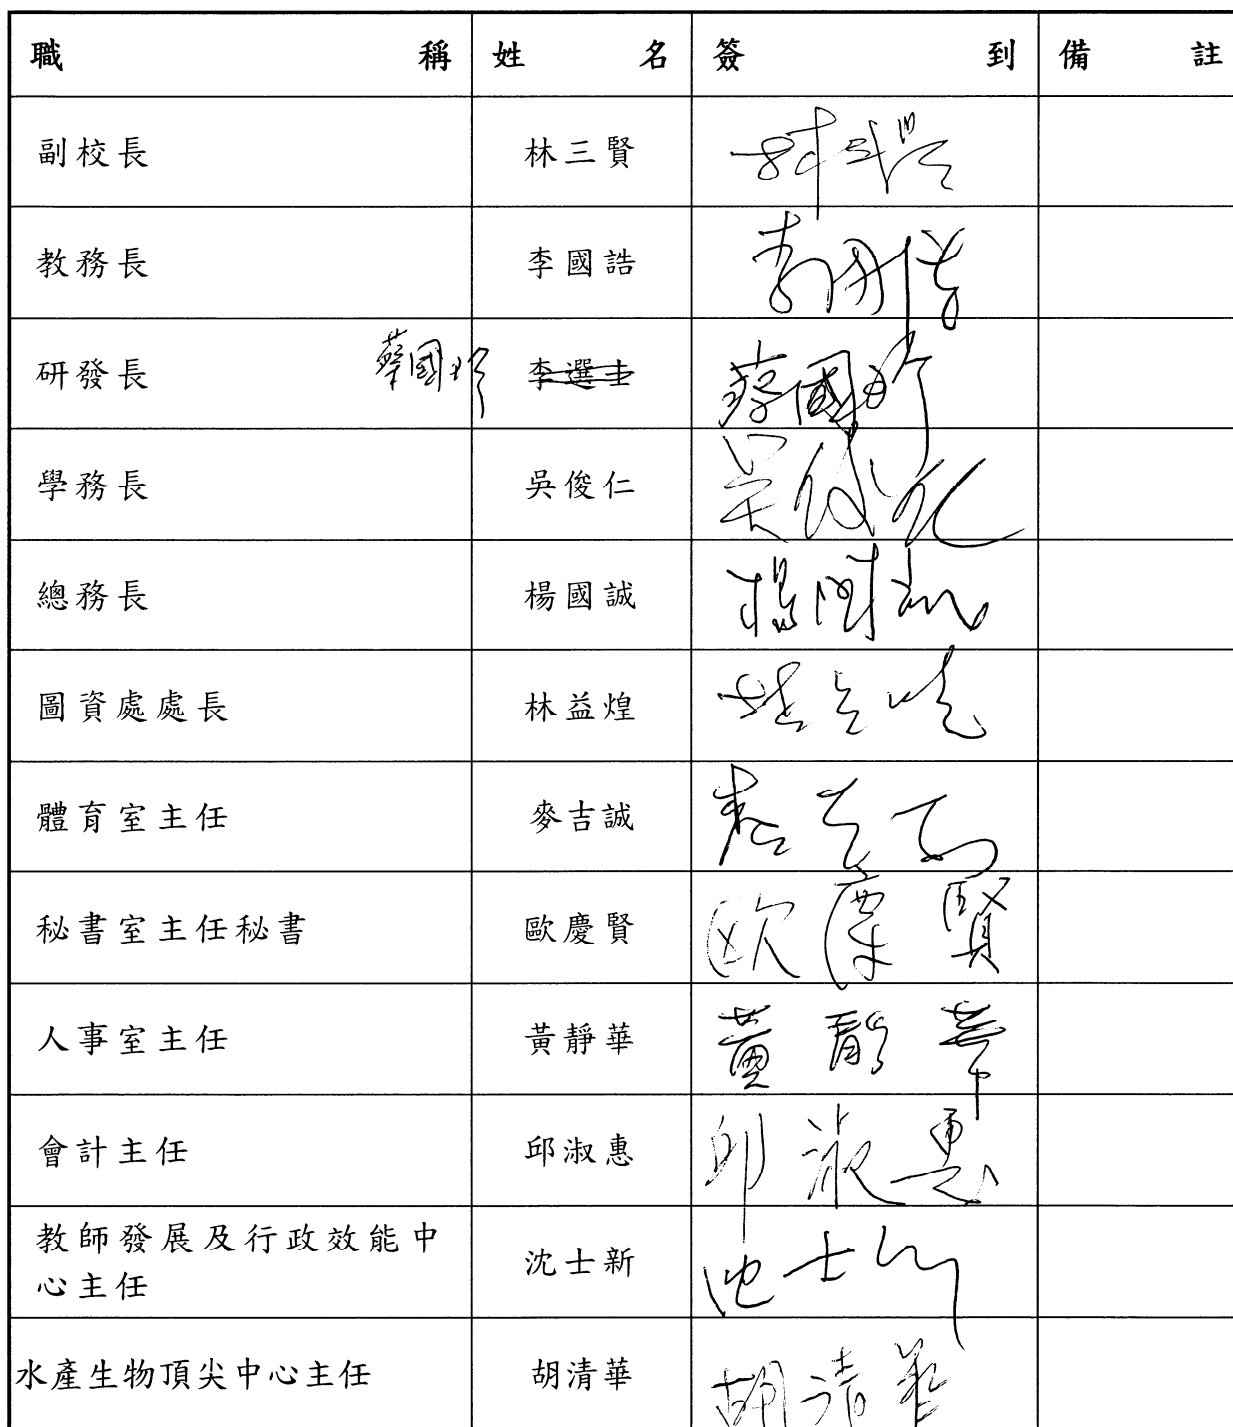 職稱 姓名 簽到 備註
副校長 林三賢 林三賢
教務長 李國誥 李國誥
研發長 蔡國珍 李選士 蔡國珍
學務長 吳俊仁 吳俊仁
總務長 楊國誠 楊國誠
圖資處處長 林益煌 林益煌
體育室主任 麥吉誠 麥吉誠
秘書室主任秘書 歐慶賢 歐慶賢
人事室主任 黃靜華 黃靜華
會計主任 邱淑惠 邱淑惠
教師發展及行政效能中
心主任 沈士新 沈士新
水產生物頂尖中心主任 胡清華 胡清華